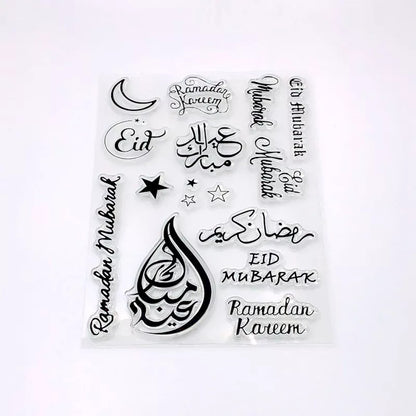 Ramadan
Kareem
Mubarak
Eid Mubarak
Eid
عيد
مبارك
Eid
Mubarak
Ramadan Mubarak
رمضان كريم
عيد مبارك
EID
MUBARAK
Ramadan
Kareem